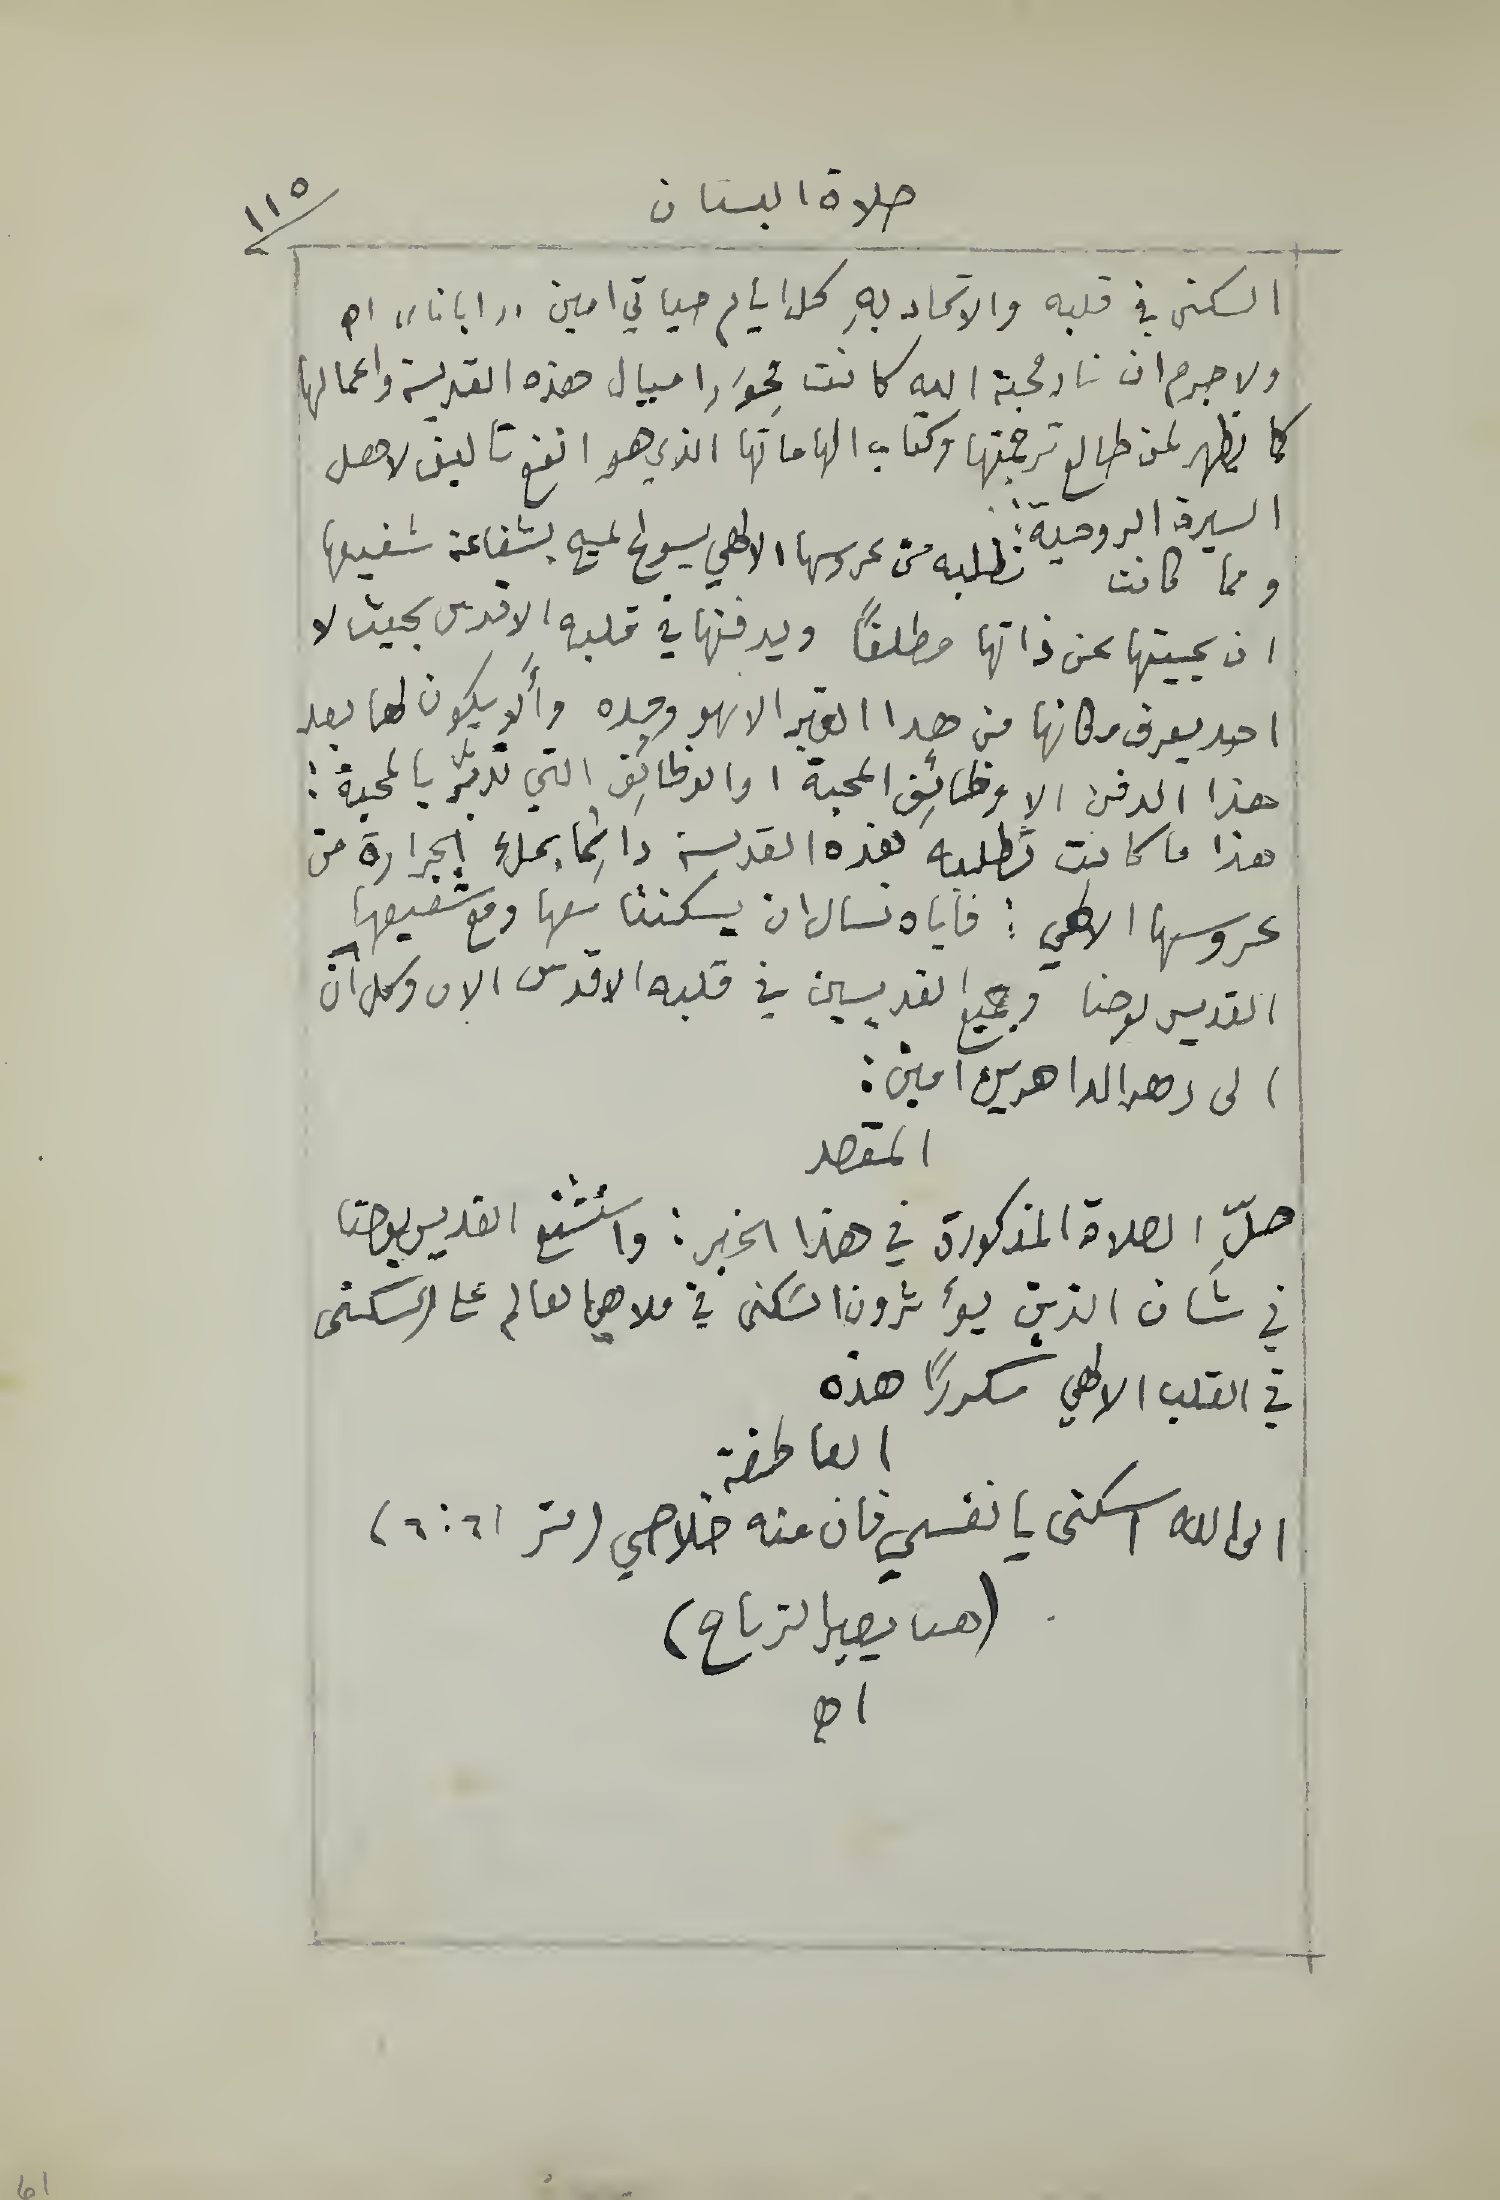 صلاة البستان
١١٥
السكنى في قلبه والاتحاد بهِ كل ايام حياتي امين ,, ابانا,, اھ
ولا جرم ان نار محبة الله كانت محوَر اميال هذه القديسة واعمالها
كما يظهر لمن طالع ترجمتها وكتاب الهاماتها الذي هو انفع تأليف لاهل
السيرة الروحية:
ومما كانت تطلبه من عروسها الالهي يسوع المسيح بشفاعة شفيعها
ان يميتها عن ذاتها مطلقاً ويدفنها في قلبه الاقدس بحيث لا
احد يعرف مكانها من هذا القبر الا هو وحده وألا يكون لها بعد
هذا الدفن الا وظائف المحبة او الوظائف التي تدبَّر بالمحبة:
هذا ما كانت تطلبه هذه القديسة دائما بملء الحرارة من
عروسها الالهي: فاياه نسال ان يسكننا معها ومع شفيعها
القديس يوحنا وجميع القديسين في قلبه الاقدس الان وكل آن
الى دهر الداهرين آمين:
المقصد
صلِّ الصلاة المذكورة في هذا الخبر: واستشفع القديس يوحنا
في شان الذين يؤثرون السكنى في ملاهي العالم على السكنى
في القلب الالهي مكرراً هذه
العاطفة
الى الله اسكني يا نفسي فان منه خلاصي (مز ٦١: ٦)
(هنا يصير الزياح)
اھ
61